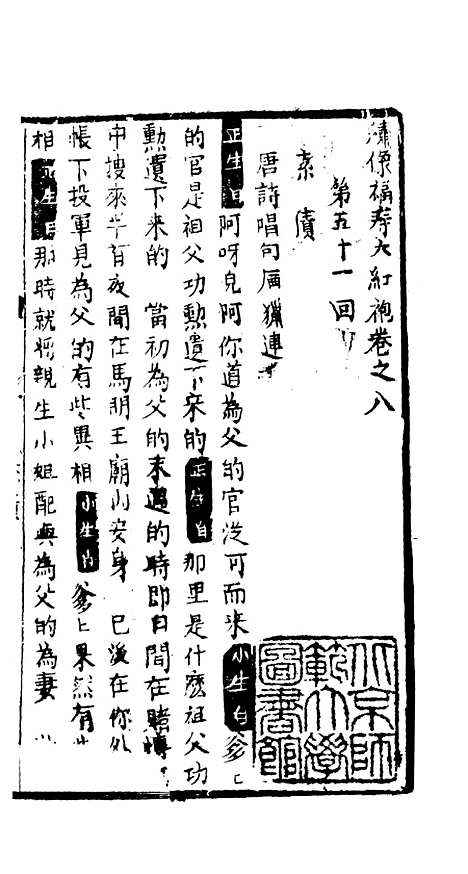 繡像福壽大紅袍卷之八
第五十一回
索債
唐詩唱句
正生白阿呀兒阿你道為父的官從何而來小生白爹上
的官是祖父功勲遺下來的正生白那里是什麽祖父功
勲遺下來的 當初為父的未遇的時即日間在賭塼
中捜來半百夜間在馬明王廟內安身 已後在你外
帳下投軍見為父的有些異相小生白爹上果然有些
相正生白那時就將親生小姐配與為父的為妻
北京師範大學圖書館